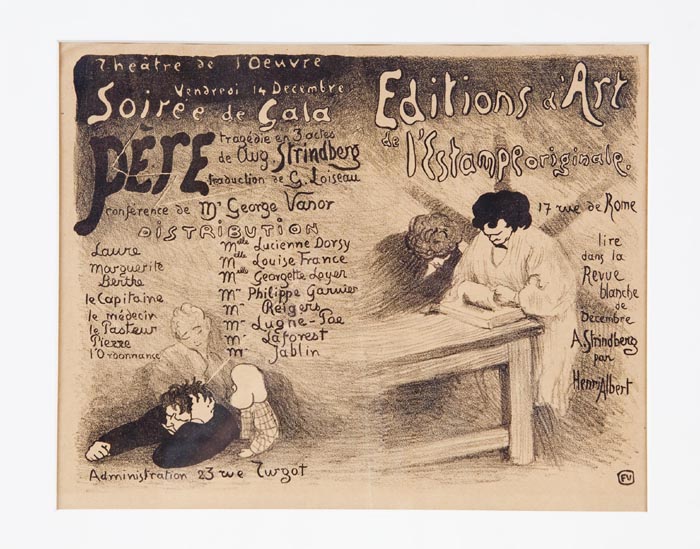 Théâtre de l'Oeuvre
Vendredi 14 Décembre
Soirée de Gala
PÈRE
tragédie en 3 actes
de Aug. Strindberg
traduction de G. Loiseau
conférence de Mr George Vanor
DISTRIBUTION
Laure Melle Lucienne Dorsy
Marguerite Melle Louise France
Berthe Melle Georgette Loyer
le Capitaine Mr Philippe Garnier
le médecin Mr Reigers
le Pasteur Mr Lugne-Poe
Pierre Mr Laforest
l'Ordonnance Mr Jablin
Administration 23 rue Turgot
Editions d'Art
de l'Estampe originale.
17 rue de Rome
lire
dans la
Revue
blanche
de
Decembre
A. Strindberg
par
Henri Albert
FV